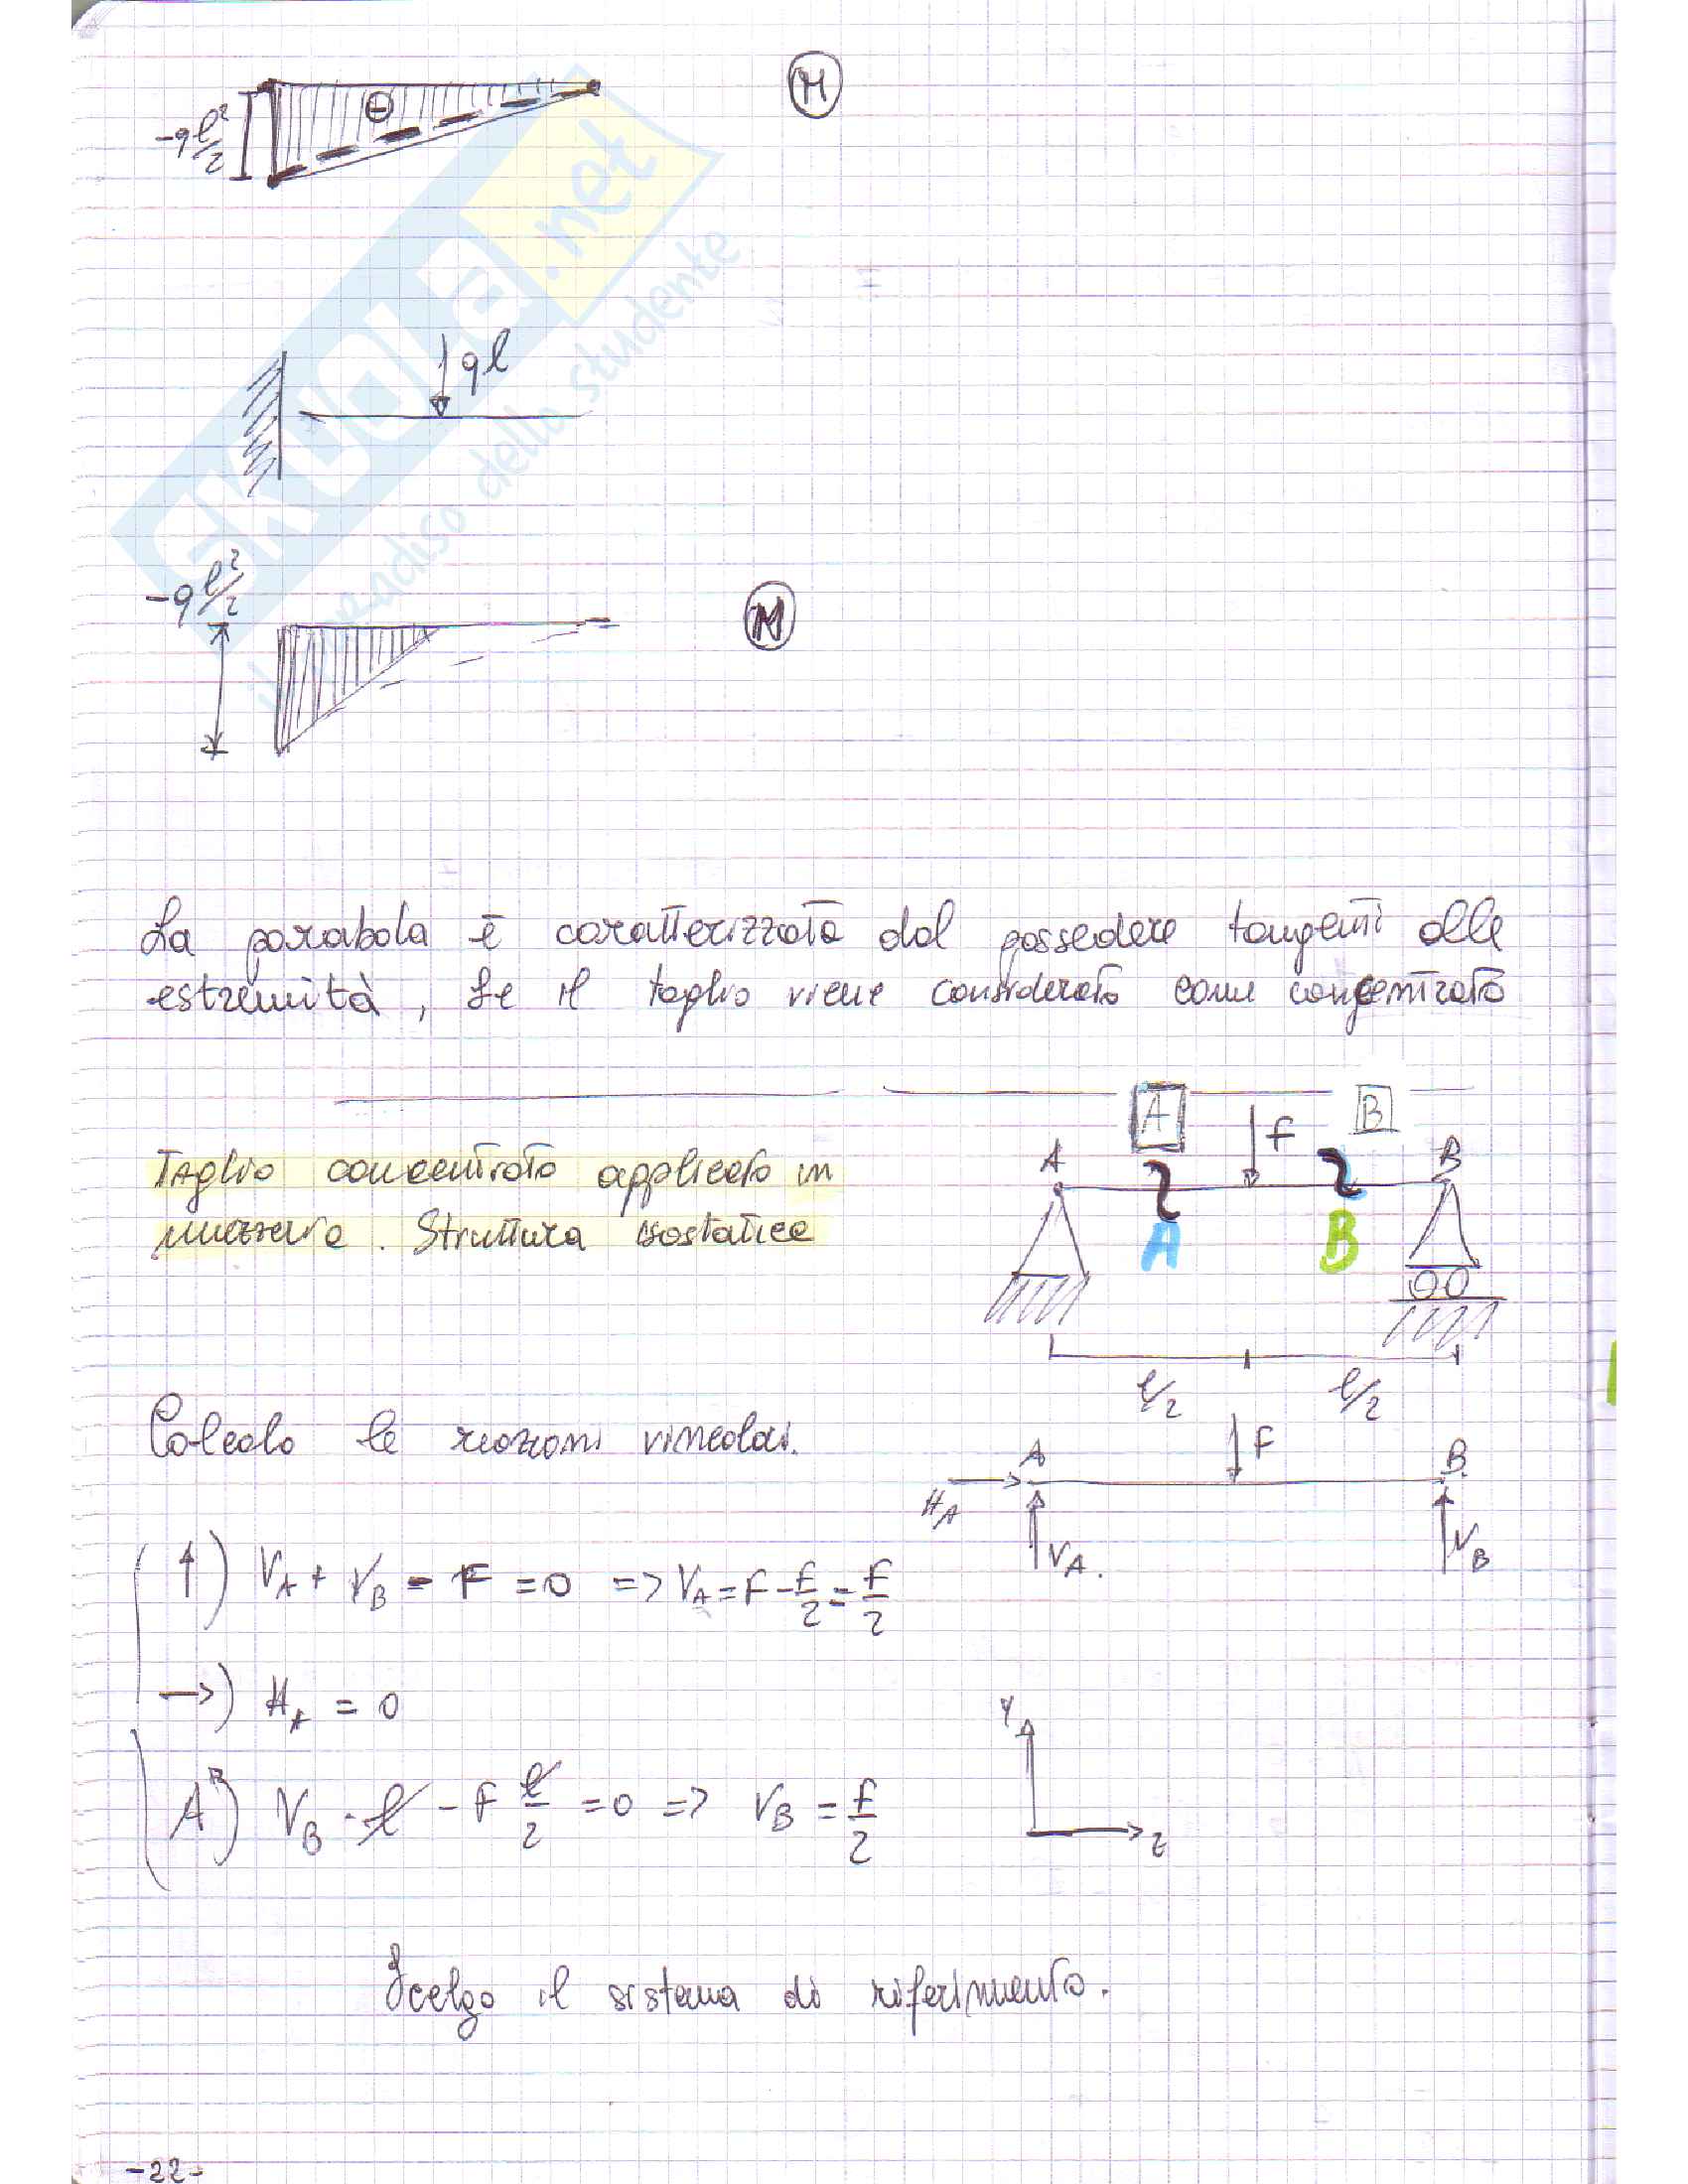 -q l²/2
⊖
M
SKUOLA.net
il paradiso dello studente
ql
-q l²/2
M
La parabola è caratterizzata dal possedere tangenti alle
estremità, Se il taglio viene considerato come concentrato
Taglio concentrato applicato in
mezzeria. Struttura isostatica
A B
A F B
A B
l/2 l/2
Calcolo le reazioni vincolari.
A F B
H_A V_A. V_B
↑) V_A + V_B - F = 0 => V_A = F - F/2 = F/2
→) H_A = 0
A) V_B · l - F l/2 = 0 => V_B = F/2
Y
z
Scelgo il sistema di riferimento.
-22-